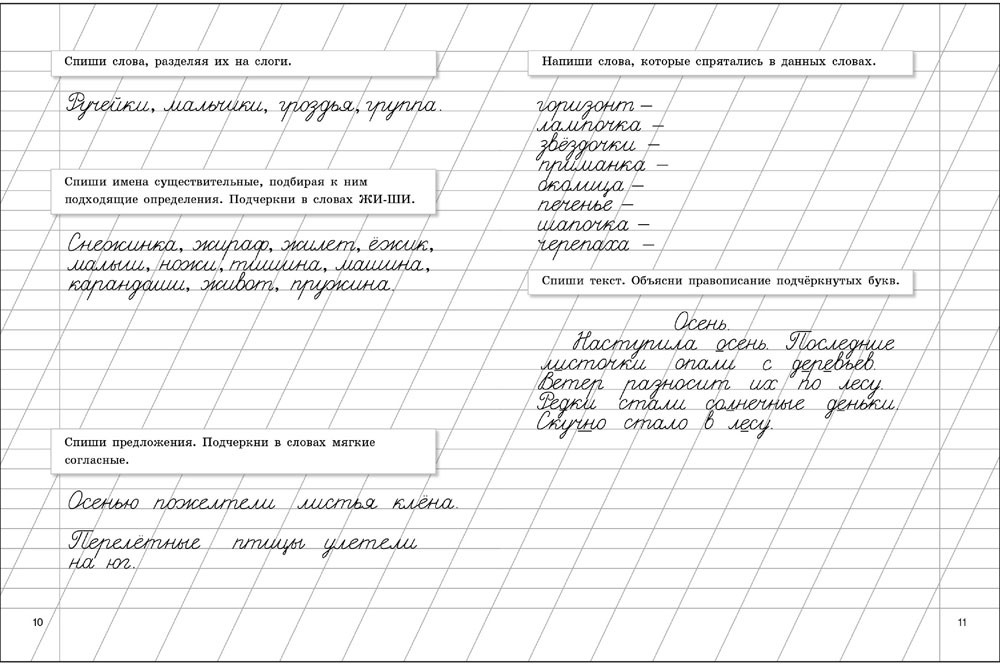 Спиши слова, разделяя их на слоги.
Ручейки, мальчики, гроздья, группа.
Спиши имена существительные, подбирая к ним
подходящие определения. Подчеркни в словах ЖИ-ШИ.
Снежинка, жираф, жилет, ёжик,
малыш, ножи, тишина, машина,
карандаши, живот, пружина.
Спиши предложения. Подчеркни в словах мягкие
согласные.
Осенью пожелтели листья клёна.
Перелётные птицы улетели
на юг.
10
Напиши слова, которые спрятались в данных словах.
горизонт –
лампочка –
звёздочки –
приманка –
околица –
печенье –
шапочка –
черепаха –
Спиши текст. Объясни правописание подчёркнутых букв.
Осень.
Наступила осень. Последние
листочки опали с деревьев.
Ветер разносит их по лесу.
Редки стали солнечные деньки.
Скучно стало в лесу.
11